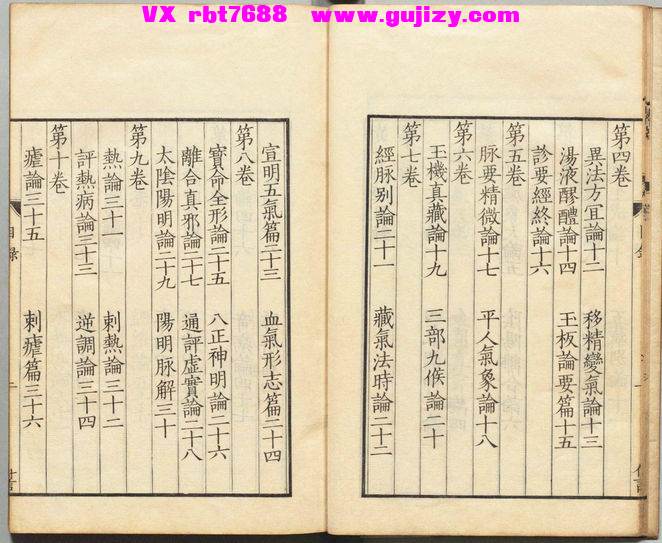 VX rbt7688 www.gujizy.com
第四卷
異法方冝論十二 移精變氣論十三
湯液醪醴論十四 玉板論要篇十五
診要經終論十六
第五卷
脉要精微論十七 平人氣象論十八
第六卷
玉機真藏論十九 三部九候論二十
第七卷
經脉別論二十一 藏氣法時論二十二
宣明五氣篇二十三 血氣形志篇二十四
第八卷
寶命全形論二十五 八正神明論二十六
離合真邪論二十七 通評虛實論二十八
太陰陽明論二十九 陽明脉解三十
第九卷
熱論三十一 刺熱論三十二
評熱病論三十三 逆調論三十四
第十卷
瘧論三十五 刺瘧篇三十六
目錄